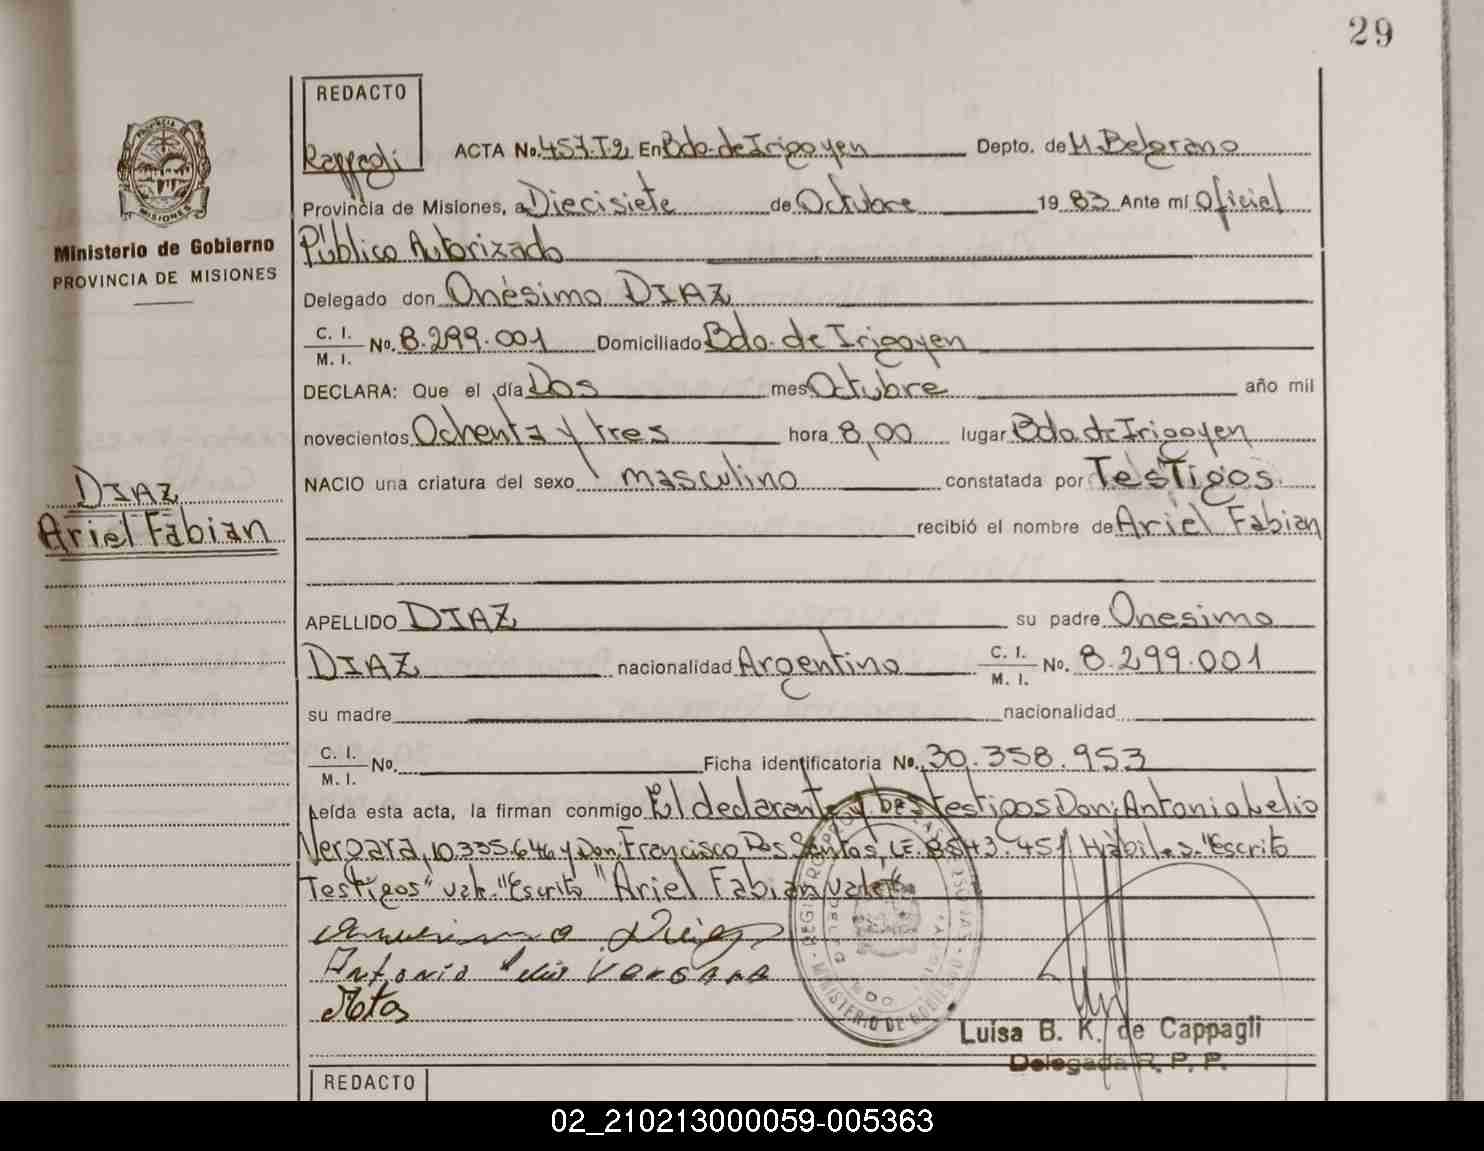 29
REDACTO
ACTA No. 457.T2 En Bdo. de Irigoyen Depto. de M. Belgrano
Provincia de Misiones, a Diecisiete de Octubre 1983 Ante mí Oficial
Público Autorizado
Ministerio de Gobierno
PROVINCIA DE MISIONES
Delegado don Onésimo DIAZ
C. I. M. I. No. 8.299.001 Domiciliado Bdo. de Irigoyen
DECLARA: Que el día Dos mes Octubre año mil
novecientos Ochenta y tres hora 8,00 lugar Bdo. de Irigoyen
NACIO una criatura del sexo masculino constatada por Testigos
DIAZ
Ariel Fabian
recibió el nombre de Ariel Fabian
APELLIDO DIAZ su padre Onesimo
DIAZ nacionalidad Argentino C. I. M. I. No. 8.299.001
su madre nacionalidad
C. I. M. I. No. Ficha identificatoria No. 30.358.953
Leída esta acta, la firman conmigo El declarante y los testigos Don: Antonio Lelio
Vergara, 10.335.646 y Don, Francisco Dos Santos, L.E. 8.543.451 Hábiles. "Escrito
Testigos" vale. "Escrito "Ariel Fabian, vale"
Antonio Lelio Vergara
MINISTERIO DE GOBIERNO
Luisa B. K. de Cappagli
Delegada R. P. P.
REDACTO
02_210213000059-005363